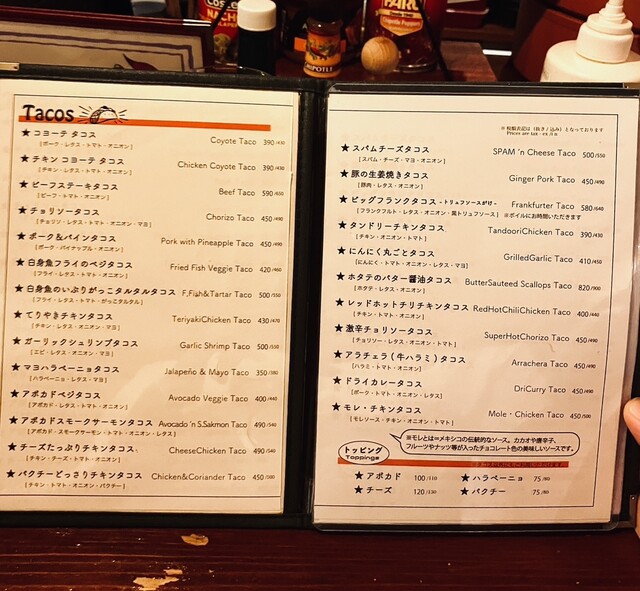 Tacos
★ コヨーテ タコス Coyote Taco 390/430
[ポーク・レタス・トマト・オニオン]
★ チキン コヨーテ タコス Chicken Coyote Taco 390/430
[チキン・レタス・トマト・オニオン]
★ ビーフステーキタコス Beef Taco 590/650
[ビーフ・トマト・オニオン]
★ チョリソータコス Chorizo Taco 450/490
[チョリソ・レタス・トマト・オニオン・マヨ]
★ ポーク&パインタコス Pork with Pineapple Taco 450/490
[ポーク・パイナップル・オニオン]
★ 白身魚フライのベジタコス Fried Fish Veggie Taco 420/460
[フライ・レタス・トマト・オニオン]
★ 白身魚のいぶりがっこタルタルタコス F,Fish&Tartar Taco 500/550
[フライ・レタス・トマト・がっこタルタル]
★ てりやきチキンタコス TeriyakiChicken Taco 430/470
[チキン・レタス・オニオン・マヨ]
★ ガーリックシュリンプタコス Garlic Shrimp Taco 500/550
[エビ・レタス・オニオン・マヨ]
★ マヨハラペーニョタコス Jalapeño & Mayo Taco 350/380
[ハラペーニョ・レタス・マヨ]
★ アボカドベジタコス Avocado Veggie Taco 400/440
[アボカド・レタス・トマト・オニオン]
★ アボカドスモークサーモンタコス Avocado 'n S.Sakmon Taco 490/540
[アボカド・スモークサーモン・トマト・オニオン・レタス]
★ チーズたっぷりチキンタコス CheeseChicken Taco 490/540
[チキン・チーズ・トマト・オニオン]
★ パクチーどっさりチキンタコス Chicken&Coriander Taco 450/500
[チキン・トマト・オニオン・パクチー]
※ 税額表記は(抜き/込み)となっております
Prices are tax - ex / i n
★ スパムチーズタコス SPAM 'n Cheese Taco 500/550
[スパム・チーズ・マヨ・オニオン]
★ 豚の生姜焼きタコス Ginger Pork Taco 450/490
[豚肉・レタス・オニオン]
★ ビッグフランクタコス・トリュフソースがけ・ Frankfurter Taco 580/640
[フランクフルト・レタス・オニオン・黒トリュフソース] ※ボイルにお時間いただきます
★ タンドリーチキンタコス TandooriChicken Taco 390/430
[チキン・オニオン・トマト]
★ にんにく丸ごとタコス GrilledGarlic Taco 410/450
[にんにく・トマト・オニオン・レタス・マヨ]
★ ホタテのバター醤油タコス ButterSauteed Scallops Taco 820/900
[ホタテ・レタス・オニオン]
★ レッドホットチリチキンタコス RedHotChiliChicken Taco 400/440
[チキン・トマト・オニオン]
★ 激辛チョリソータコス SuperHotChorizo Taco 450/490
[チョリソー・レタス・トマト・オニオン]
★ アラチェラ(牛ハラミ)タコス Arrachera Taco 450/490
[ハラミ・トマト・オニオン]
★ ドライカレータコス DriCurry Taco 450/490
[ポーク・トマト・オニオン・レタス]
★ モレ・チキンタコス Mole・Chicken Taco 450/500
[モレソース・チキン・オニオン・トマト]
※モレとは=メキシコの伝統的なソース。カカオや唐辛子、
フルーツやナッツ等が入ったチョコレート色の美味しいソースです。
トッピング
Toppings
★ アボカド 100/110 ★ ハラペーニョ 75/80
★ チーズ 120/130 ★ パクチー 75/80
NACHO
CHIPOTLE